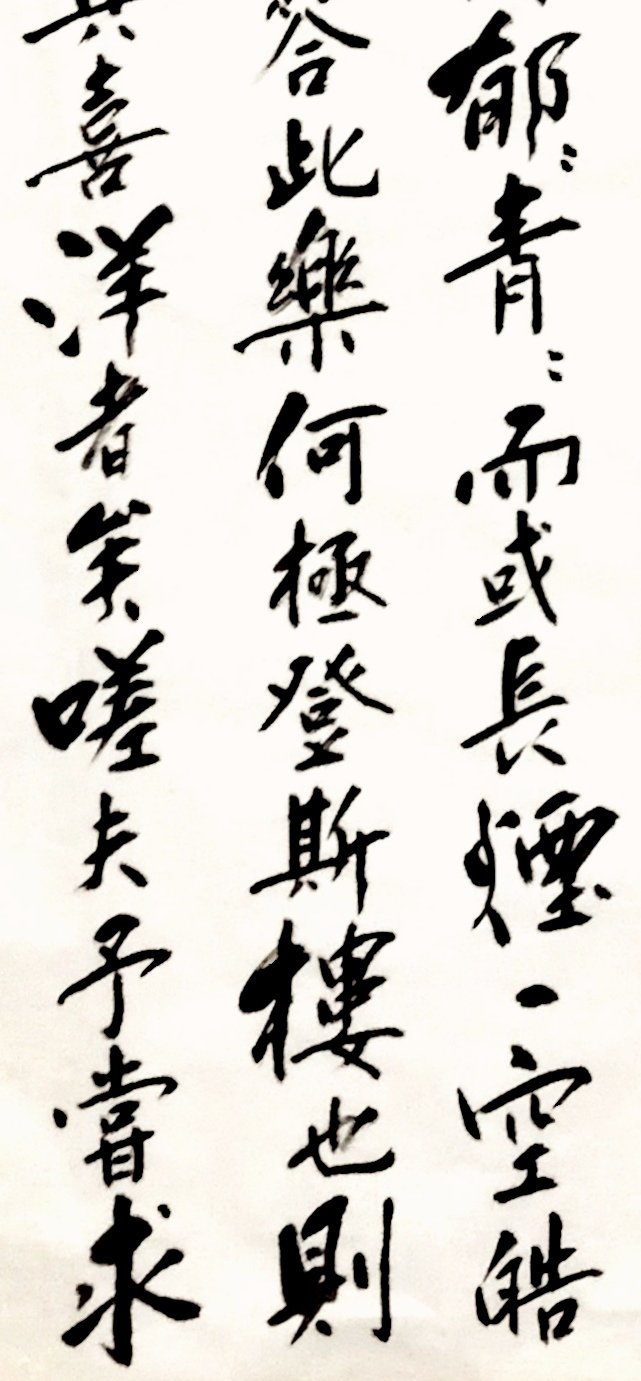 郁〻青〻而或長煙一空皓
答此樂何極登斯樓也則
其喜洋者矣嗟夫予嘗求